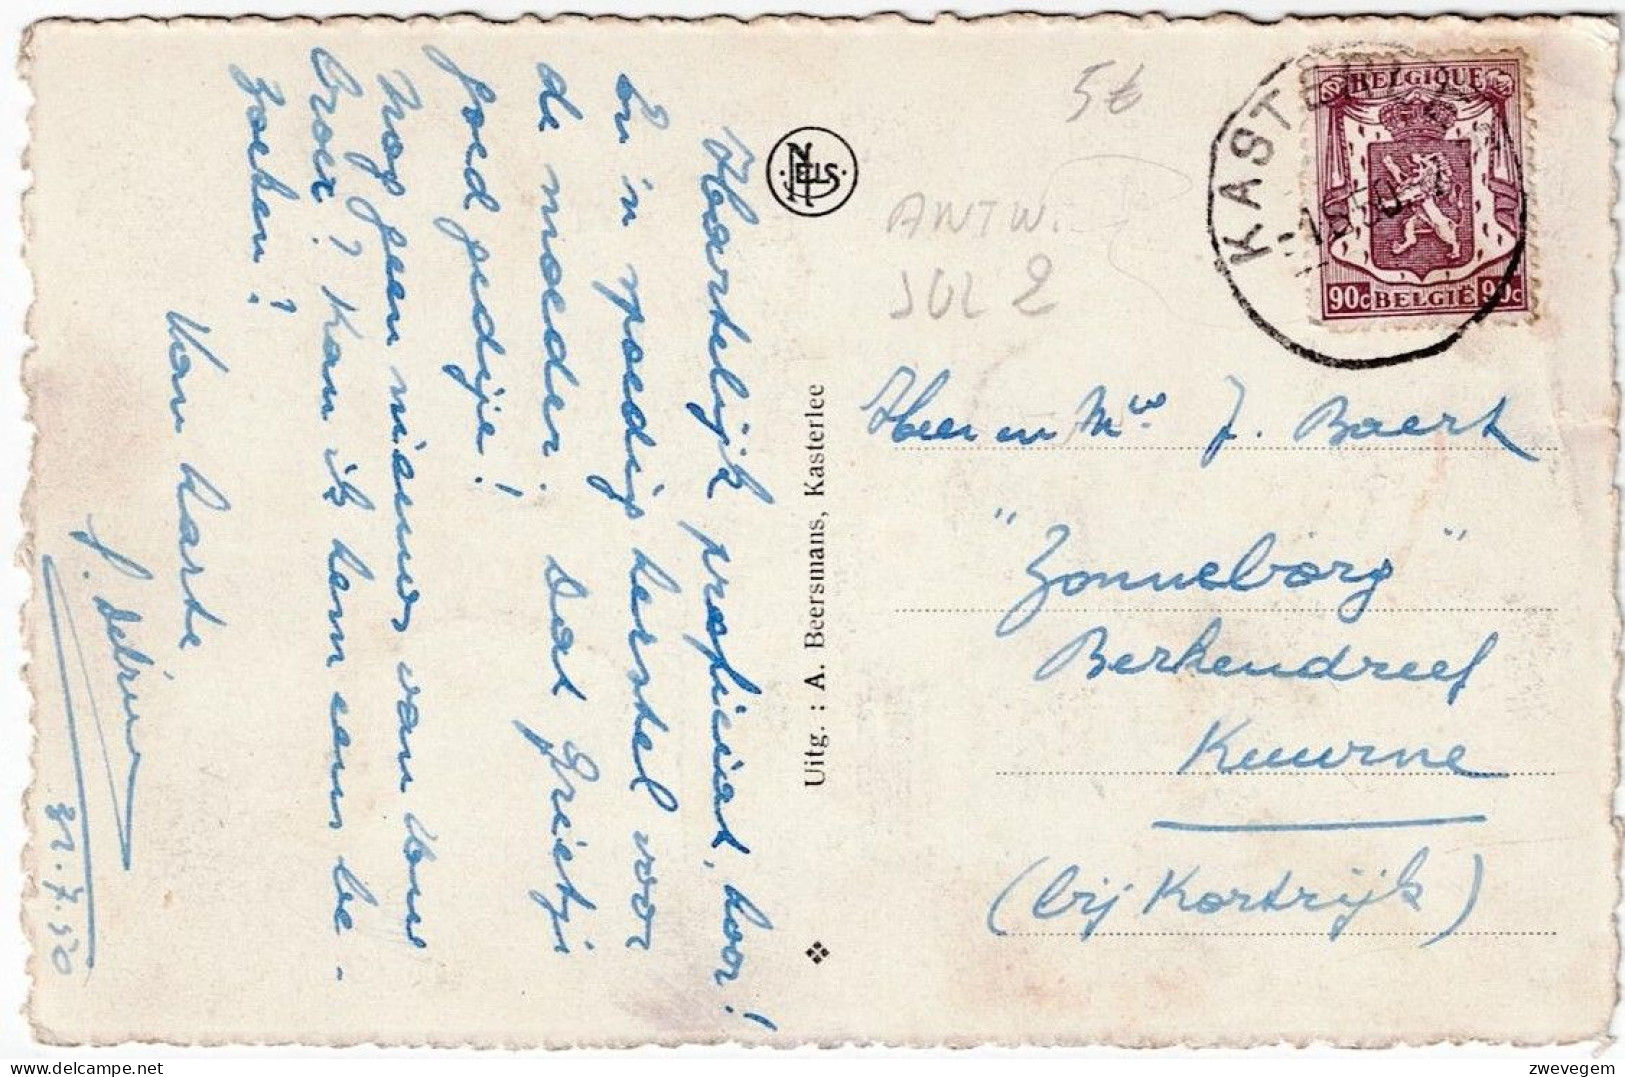 Hartelijk proficiat, hoor!
En 'n spoedig herstel voor
de moeder. Dat Grietje
goed gedije!
Nog geen nieuws van Uwe
Broer? Kan ik hem eens be-
zoeken?
Van harte
31.7.50
NELS
Uitg. : A. Beersmans, Kasterlee
5t
ANTW.
JUL 2
KASTERLEE
-1.8.50
BELGIQUE
90c BELGIË 90c
Heer en Mw. J. Baert
"Zonneborg"
Berkendreef
Kuurne
(bij Kortrijk)
zwevegem